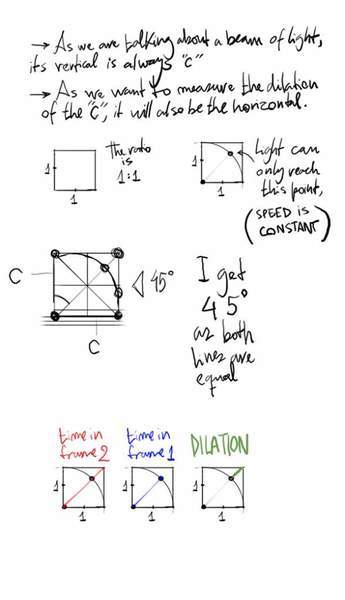 → As we are talking about a beam of light,
its vertical is always "c"
→ As we want to measure the dilation
of the "c", it will also be the horizontal.
The ratio
is
1:1
1
1
1
1
Light can
only reach
this point,
(SPEED is
CONSTANT)
C
45°
C
I get
45°
as both
lines are
equal
time in
frame 2
time in
frame 1
DILATION
1
1
1
1
1
1